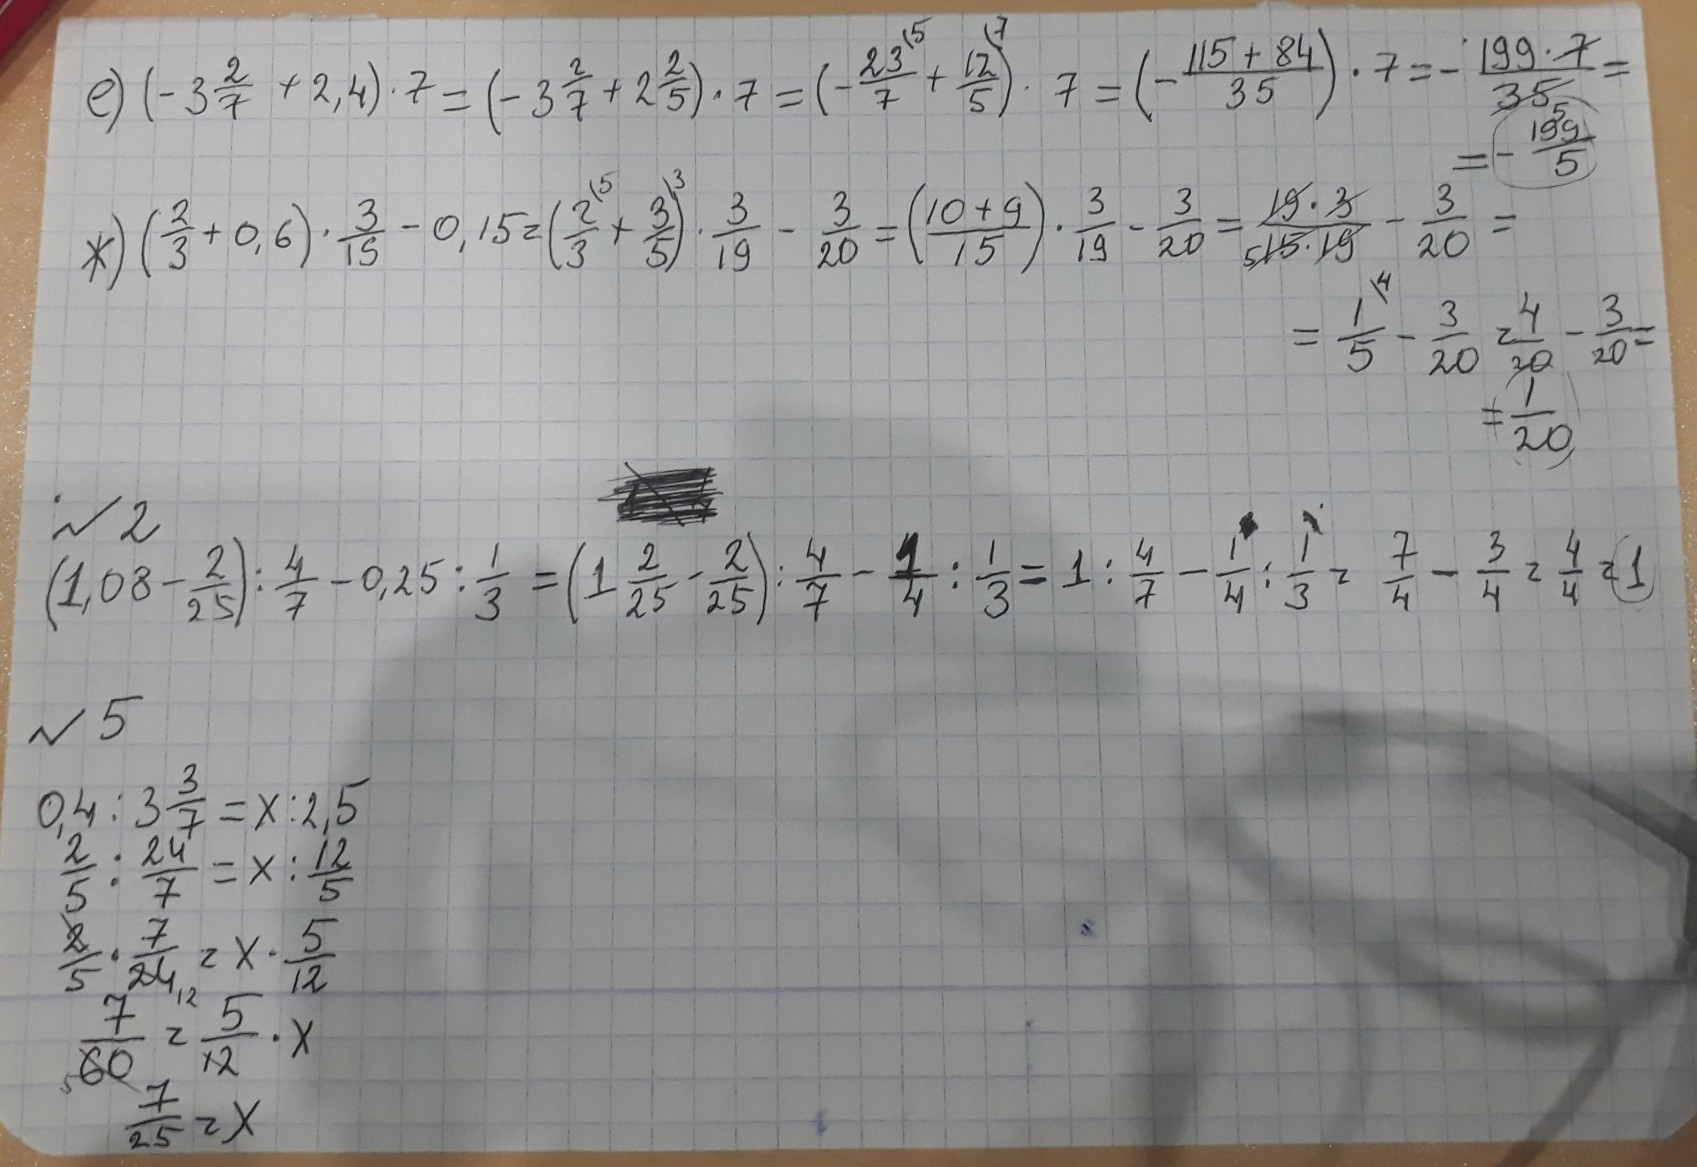 е) (-3 2/7 + 2,4) · 7 = (-3 2/7 + 2 2/5) · 7 = (- 23/7 \5 + 12/5 \7) · 7 = (- (115 + 84)/35) · 7 = - (199 · 7)/35 5 =
= - 199/5
ж) (2/3 + 0,6) · 3/19 - 0,15 = (2/3 \5 + 3/5 \3) · 3/19 - 3/20 = ((10 + 9)/15) · 3/19 - 3/20 = (19 · 3)/(5 15 · 19) - 3/20 =
= 1/5 \4 - 3/20 = 4/20 - 3/20 =
= 1/20
№ 2
(1,08 - 2/25) : 4/7 - 0,25 : 1/3 = (1 2/25 - 2/25) : 4/7 - 1/4 : 1/3 = 1 : 4/7 - 1/4 : 1/3 = 7/4 - 3/4 = 4/4 = 1
№ 5
0,4 : 3 3/7 = x : 2,5
2/5 : 24/7 = x : 12/5
2/5 · 7/24 12 = x · 5/12
7/60 5 = 5/12 · x
7/25 = x